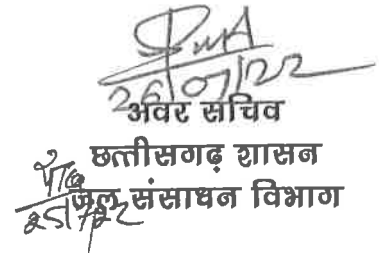 26/07/22
अवर सचिव
छत्तीसगढ़ शासन
जल संसाधन विभाग
25/7/22